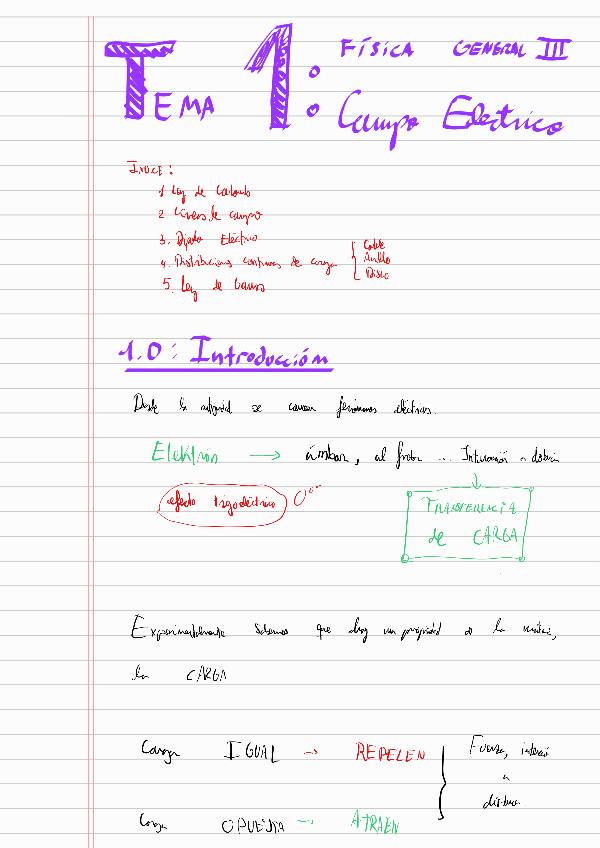 TEMA 1: FÍSICA GENERAL III
Campo Eléctrico
ÍNDICE:
1 Ley de Coulomb
2 Líneas de campo
3. Dipolo Eléctrico
4. Distribuciones continuas de carga { Cable
Anillo
Disco
5. Ley de Gauss
1.0: Introducción
Desde la se conocen fenómenos eléctricos.
Elektrón → ámbar, al frotar ... Interacción a distancia
efecto triboeléctrico
TRANSFERENCIA
de CARGA
Experimentalmente sabemos que hay una propiedad de la materia,
la CARGA
Carga IGUAL → REPELEN
Fuerza, interacción
a
distancia
Carga OPUESTA → ATRAEN